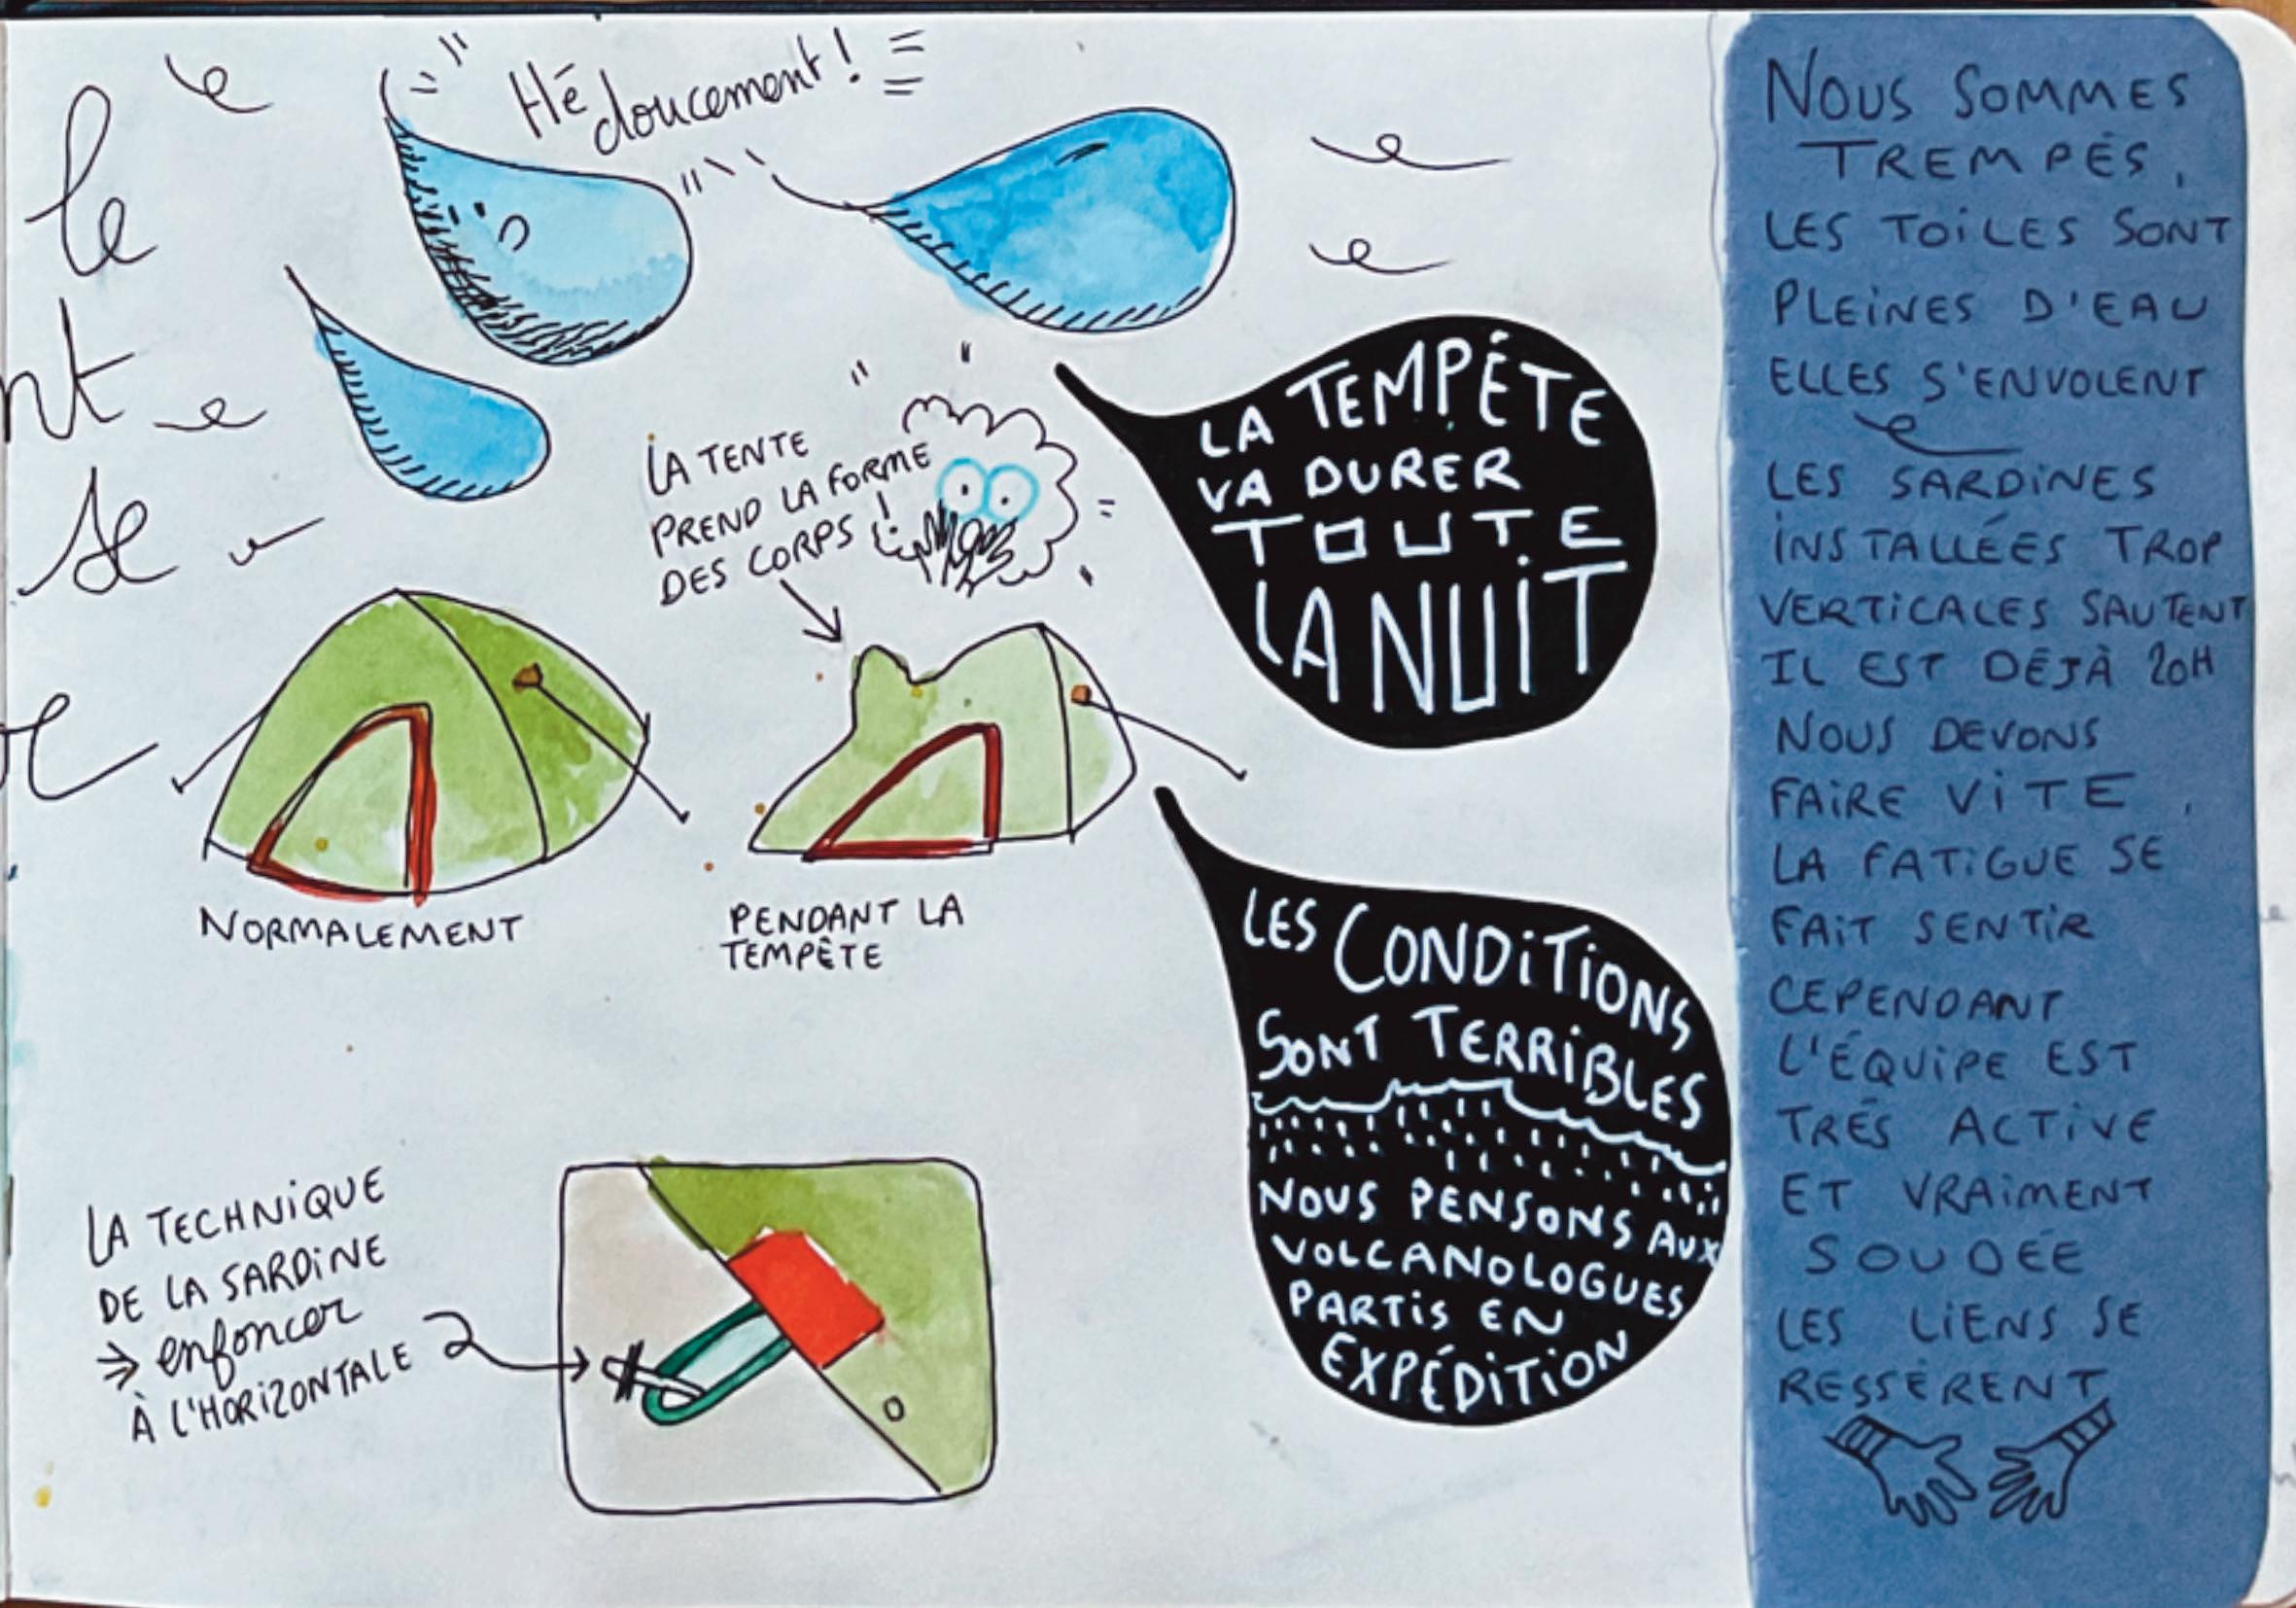 le
nt
se
Hé
doucement !
LA TENTE
PREND LA FORME
DES CORPS !
NORMALEMENT
PENDANT LA
TEMPÊTE
LA TEMPÊTE
VA DURER
TOUTE
LA NUIT
LES CONDITIONS
SONT TERRIBLES
NOUS PENSONS AUX
VOLCANOLOGUES
PARTIS EN
EXPÉDITION
LA TECHNIQUE
DE LA SARDINE
⇒ enfoncer
À L'HORIZONTALE
NOUS SOMMES
TREMPÉS,
LES TOILES SONT
PLEINES D'EAU
ELLES S'ENVOLENT
LES SARDINES
INSTALLÉES TROP
VERTICALES SAUTENT
IL EST DÉJÀ 20H
NOUS DEVONS
FAIRE VITE,
LA FATIGUE SE
FAIT SENTIR
CEPENDANT
L'ÉQUIPE EST
TRÉS ACTIVE
ET VRAIMENT
SOUDÉE
LES LIENS SE
RESSÈRENT